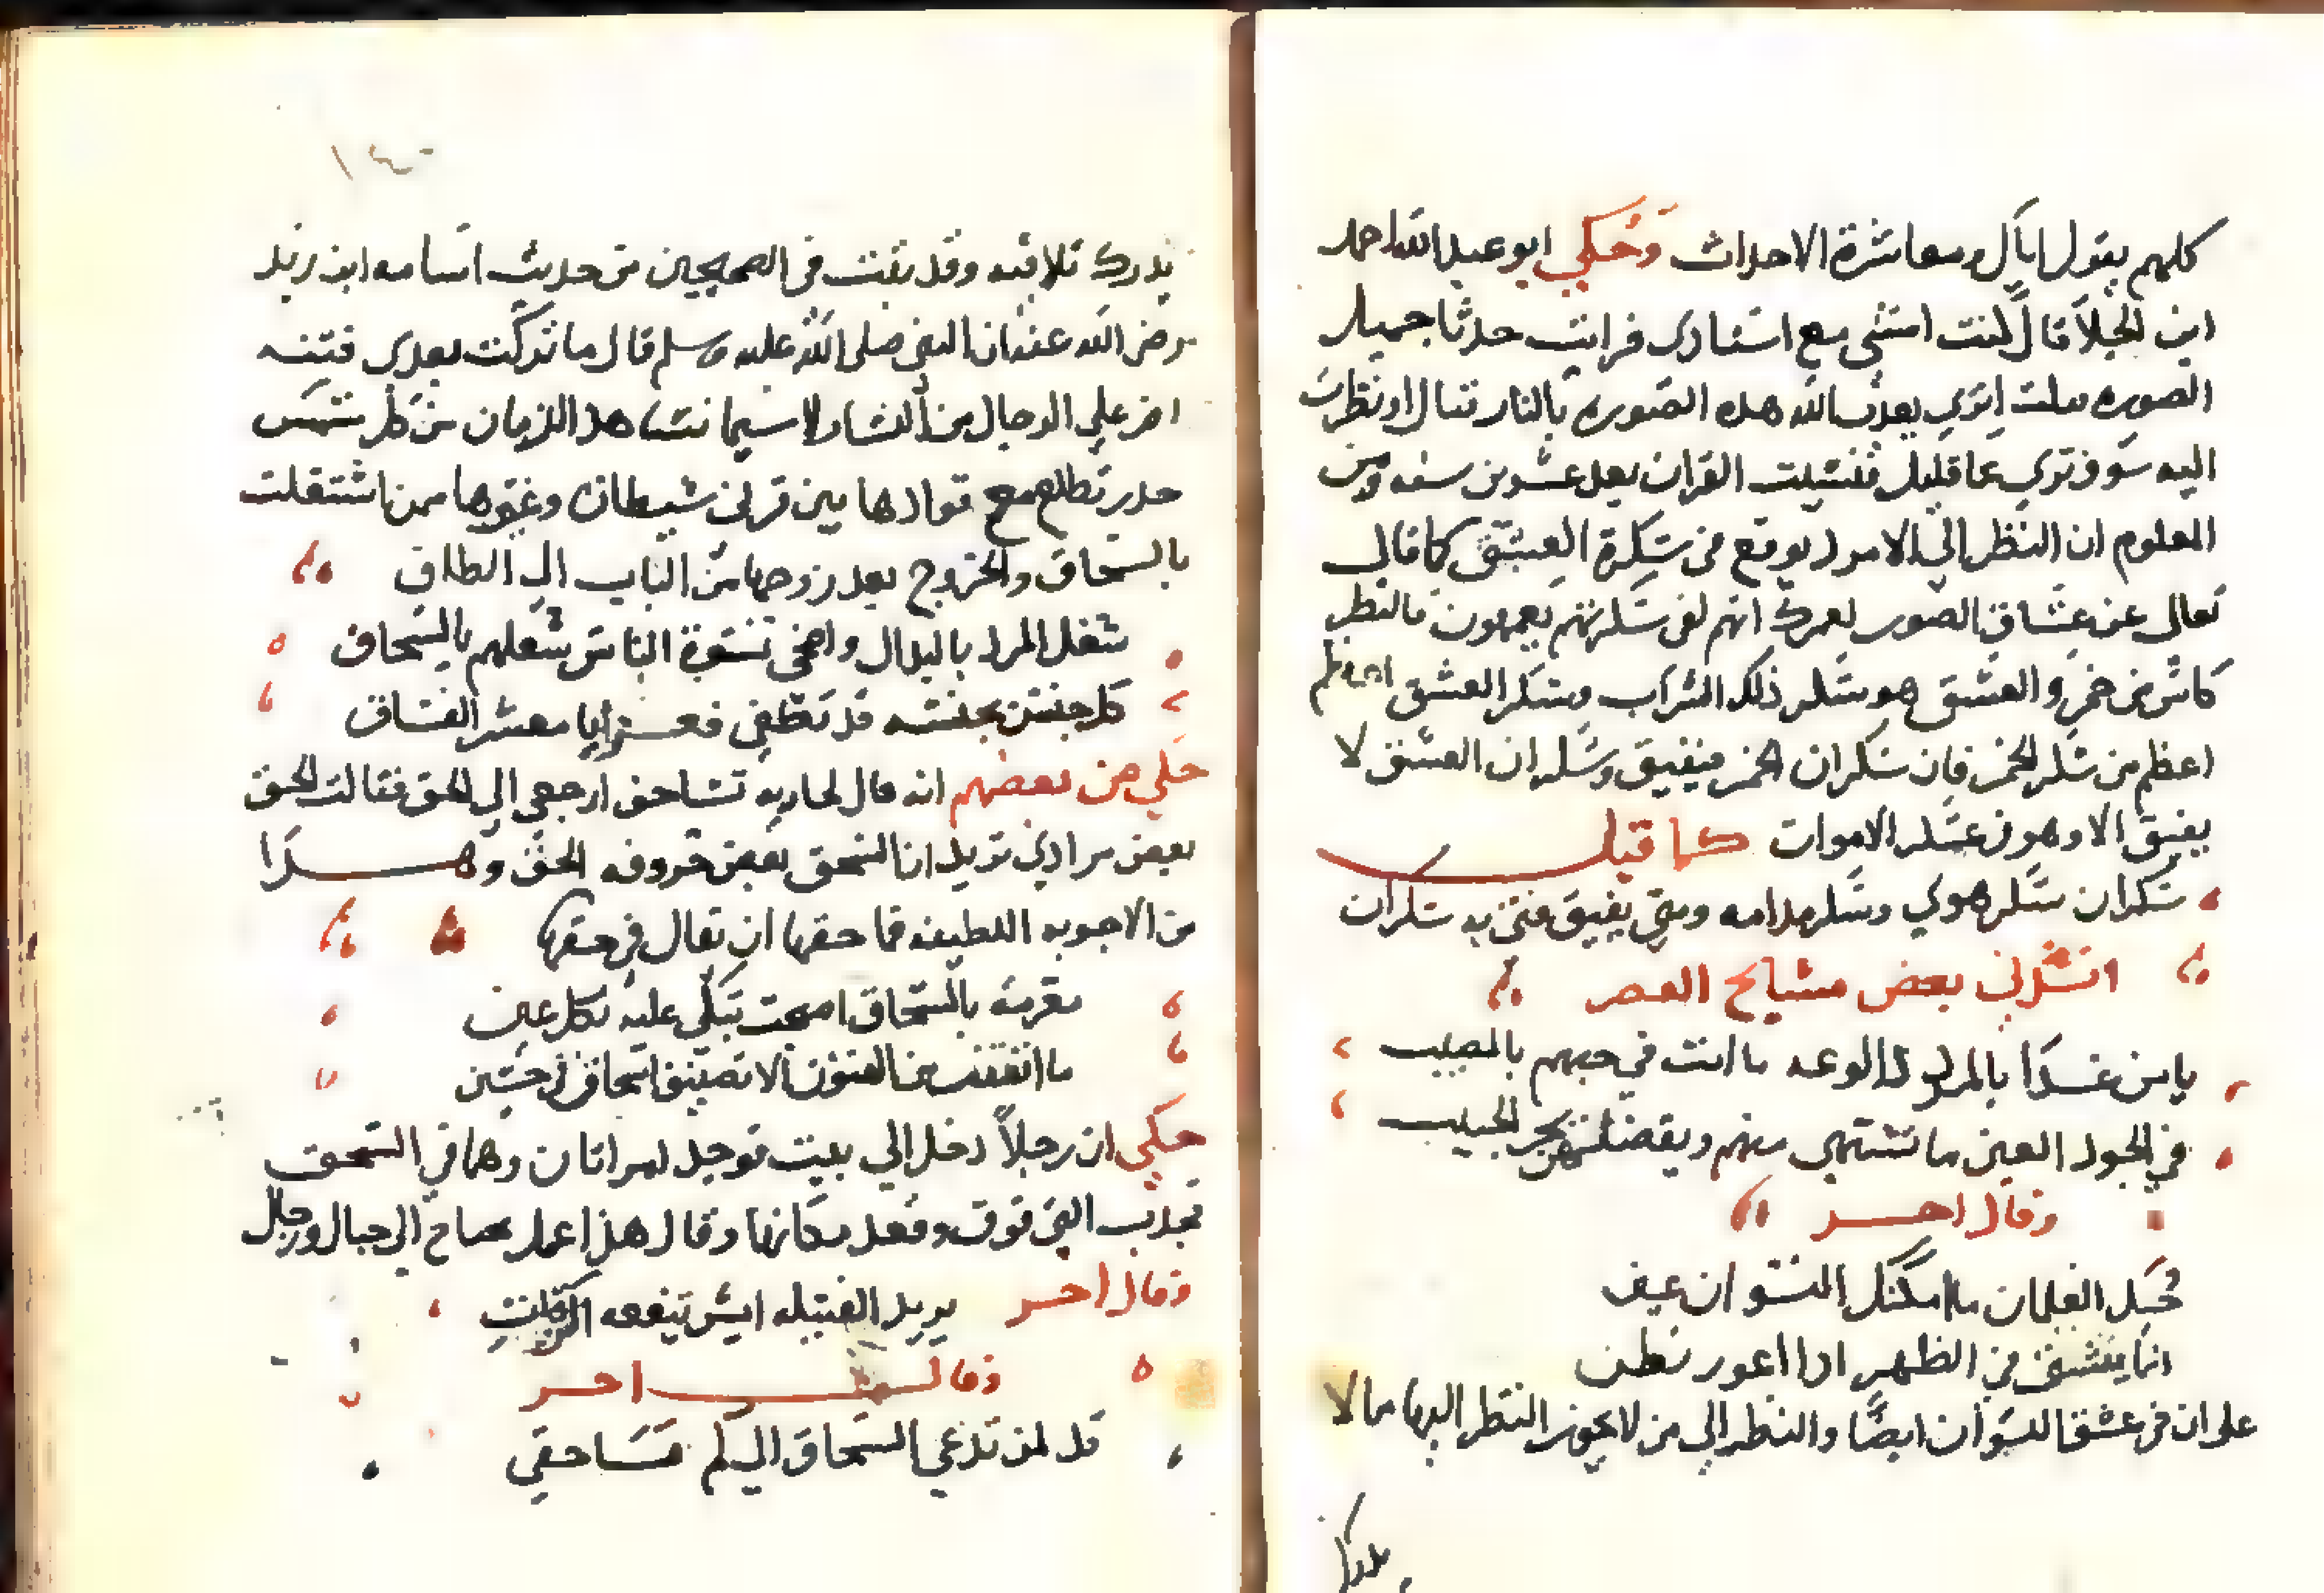 كلهم يقول اياك ومعاشرة الاحداث وحكي ابو عبد الله احمد
ابن الجلا قال كنت امشي مع استادي فرايت حدثا جميل
الصوره فقلت اتري يعذب الله هذه الصوره بالنار فقال او نظرت
اليه سوف تري عاقبته فنسيت القران بعد عشرين سنه ومن
المعلوم ان النظر الي الامرد يوقع في سكرة العشق كما قال
تعالي عن عشاق الصور لعمرك انهم لفي سكرتهم يعمهون فالنظر
كاس من خمر والعشق هو سكر ذلك الشراب وسكر العشق
اعظم من سكر الخمر فان سكران الخمر يفيق وسكران العشق لا
يفيق الا وهو في عسكر الاموات كما قيل
سكران سكر هوي وسكر مدامه ومتي يفيق فتي به سكران
انشدني بعض مشايخ العصر
يا من غدا بالمرد ذا لوعه ما انت في حبهم بالمصيب
في الخود العين ما تشتهي منهم ويفضلنهن بحر الحبيب
وقال اخر
محبك الغلمان ما امكنك النسوان عيف
انما يعشق في الظهر اذا اعور بطن
علي ان في عشق النسوان ايضا والنظر الي من لا يجوز النظر اليها ما لا
يدرك تلافيه وقد ثبت في الصحيحين من حديث اسامه ابن زيد
رضي الله عنه ان النبي صلي الله عليه وسلم قال ما تركت بعدي فتنه
اضر علي الرجال من النساء لا سيما نساء هذا الزمان من كل شمس
خدر تطلع مع قوادها بين قرني شيطان وغيرها ممن اشتغلت
بالسحاق والخروج بعد زوجها من الباب الي الطاق
شغل المرد بالبدال واضحي نسوة الناس شغلهم بالسحاق
كل جنس بجنسه قد تكفي فعزايا معشر الفساق
حكي عن بعضهم انه قال لجاريه تساحق ارجعي الي الحق فقالت الحق
بعض مرادي تريد ان السحق بعض حروفه الحق وهذا
من الاجوبه اللطيفه فما حقها ان يقال في حقها
مغرمة بالسحاق اضحت تبكي عليه بكل عين
ما اتقنت من الفنون الا تصنيف اسحاق في حنين
حكي ان رجلا دخل الي بيت فوجد امراتان وهما في السحق
فجذب التي فوق وقعد مكانها وقال هذا عمل محتاج الي حبال ورجال
وقال اخر يريد الفتيله ايش تنفعه
وقال اخر
قل لمن تدعي السحاق اليكم مساحقي
يدرك